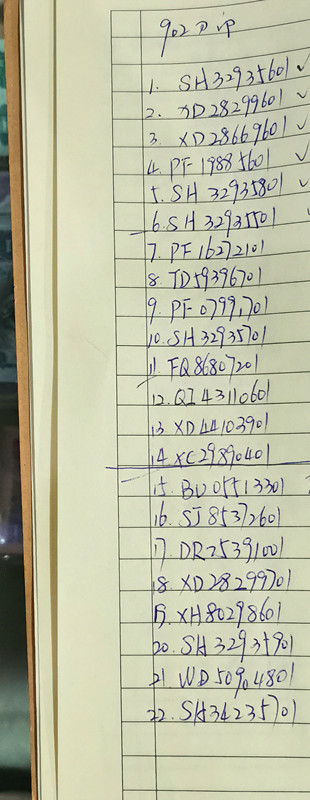 902 DIP
1. SH32935601 ✓
2. XD28299601 ✓
3. XD28669601 ✓
4. PF19885601 ✓
5. SH32935801 ✓
6. SH32935501
7. PF16272101
8. TD59396701
9. PF07991701
10. SH32935701
11. FQ86807201
12. QI43110601
13. XD44103901
14. XC29890401
15. BU05513301
16. SJ85372601
17. DR25391001
18. XD28299701
19. XH80298601
20. SH32935901
21. WD50904801
22. SH34235701